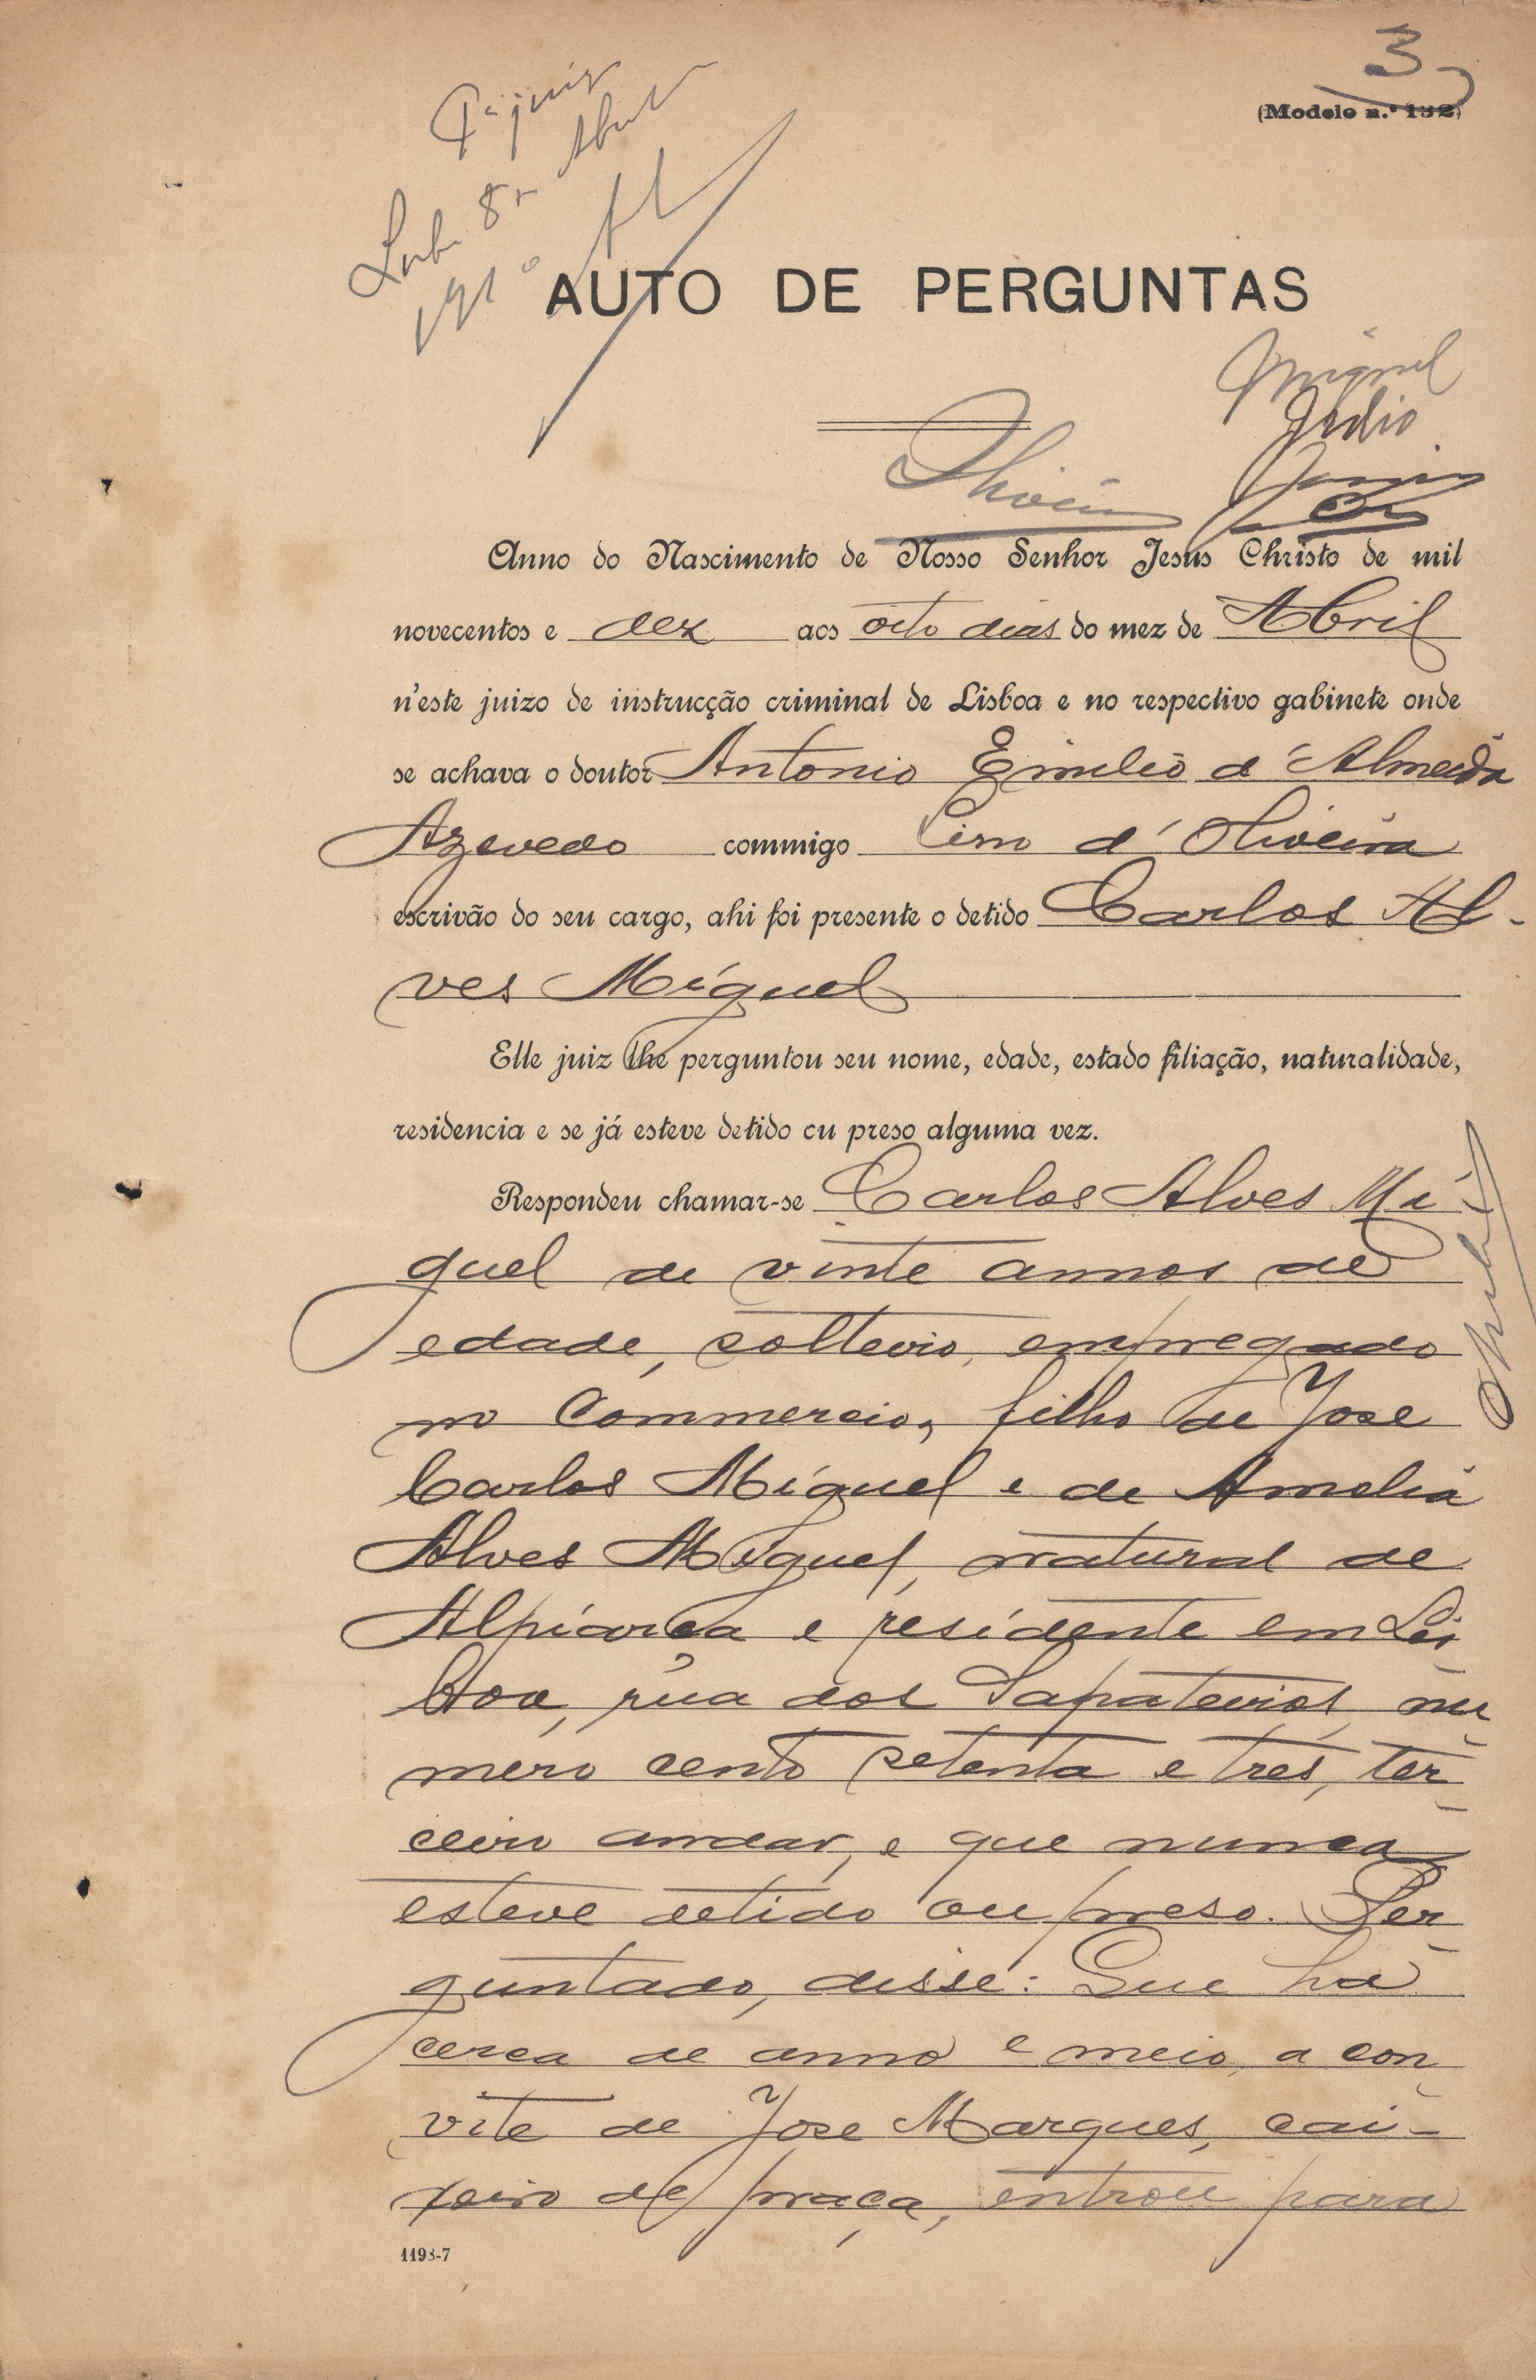 3
(Modelo n.º 132)
Lxb. 8
191º
AUTO DE PERGUNTAS
Miguel
Oliveira
Anno do Nascimento de Nosso Senhor Jesus Christo de mil
novecentos e dez aos oito dias do mez de Abril
n'este juizo de instrucção criminal de Lisboa e no respectivo gabinete onde
se achava o doutor Antonio Emilio d'Almeida
Azevedo commigo Cirno d'Oliveira
escrivão do seu cargo, ahi foi presente o detido Carlos Al-
ves Miguel
Elle juiz lhe perguntou seu nome, edade, estado filiação, naturalidade,
residencia e se já esteve detido ou preso alguma vez.
Respondeu chamar-se Carlos Alves Mi-
guel de vinte annos de
edade, solteiro, empregado
no commercio, filho de Jose
Carlos Miguel e de Amelia
Alves Miguel, natural de
Alpiarça e residente em Lis-
boa, rua dos Sapateiros, nu-
mero cento setenta e tres, ter-
ceiro andar, e que nunca
esteve detido ou preso. Per-
guntado, disse: Que ha
cerca de anno e meio, a con-
vite de Jose Marques, cai-
xeiro de praça, entrou para
1193-7